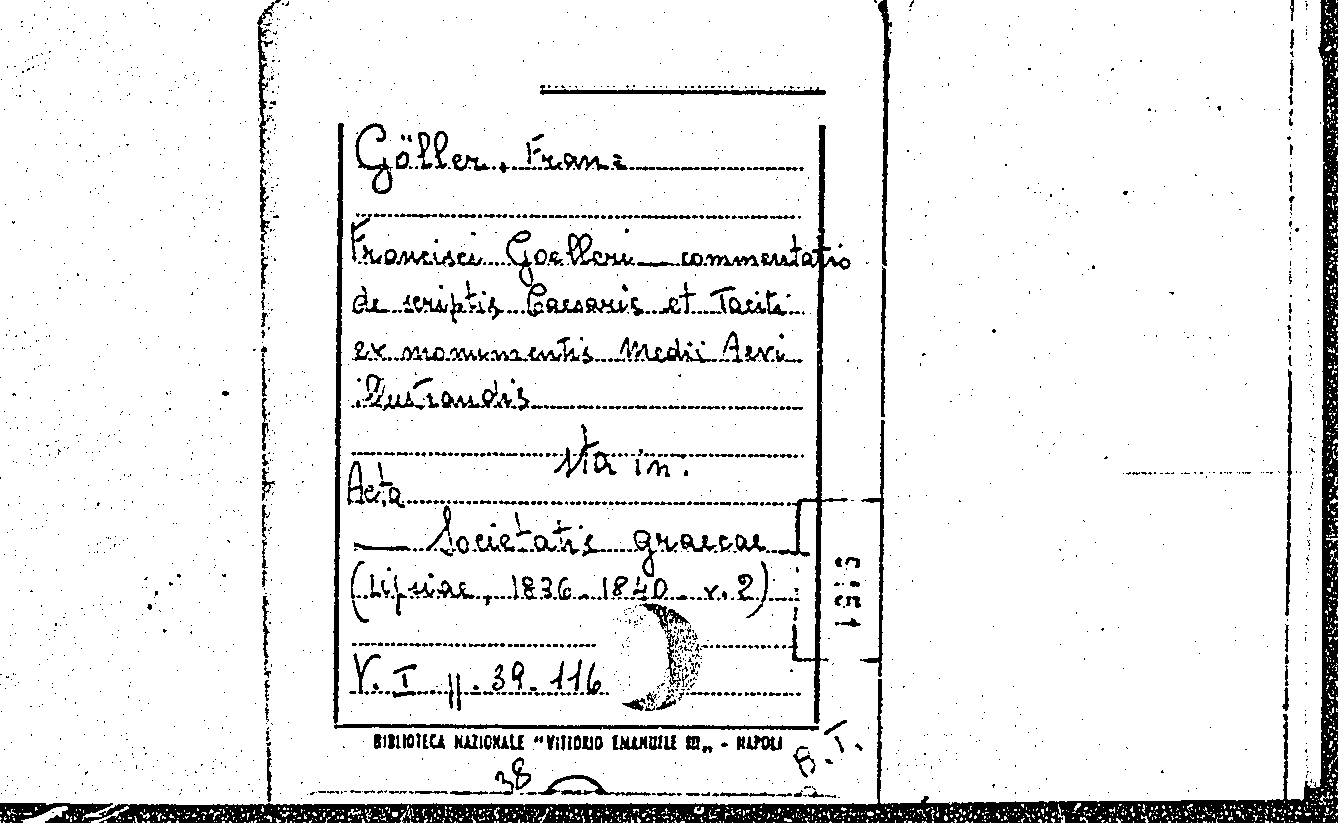 Göller, Franz
Francisci Goelleri — commentatio
de scriptis Caesaris et Taciti
ex monumentis Medii Aevi
illustrandis
sta in:
Acta
— Societatis graecae
(Lipsiae, 1836-1840 v. 2)
V. I pp. 39-116
BIBLIOTECA NAZIONALE "VITTORIO EMANUELE III„ - NAPOLI
B.T.
38